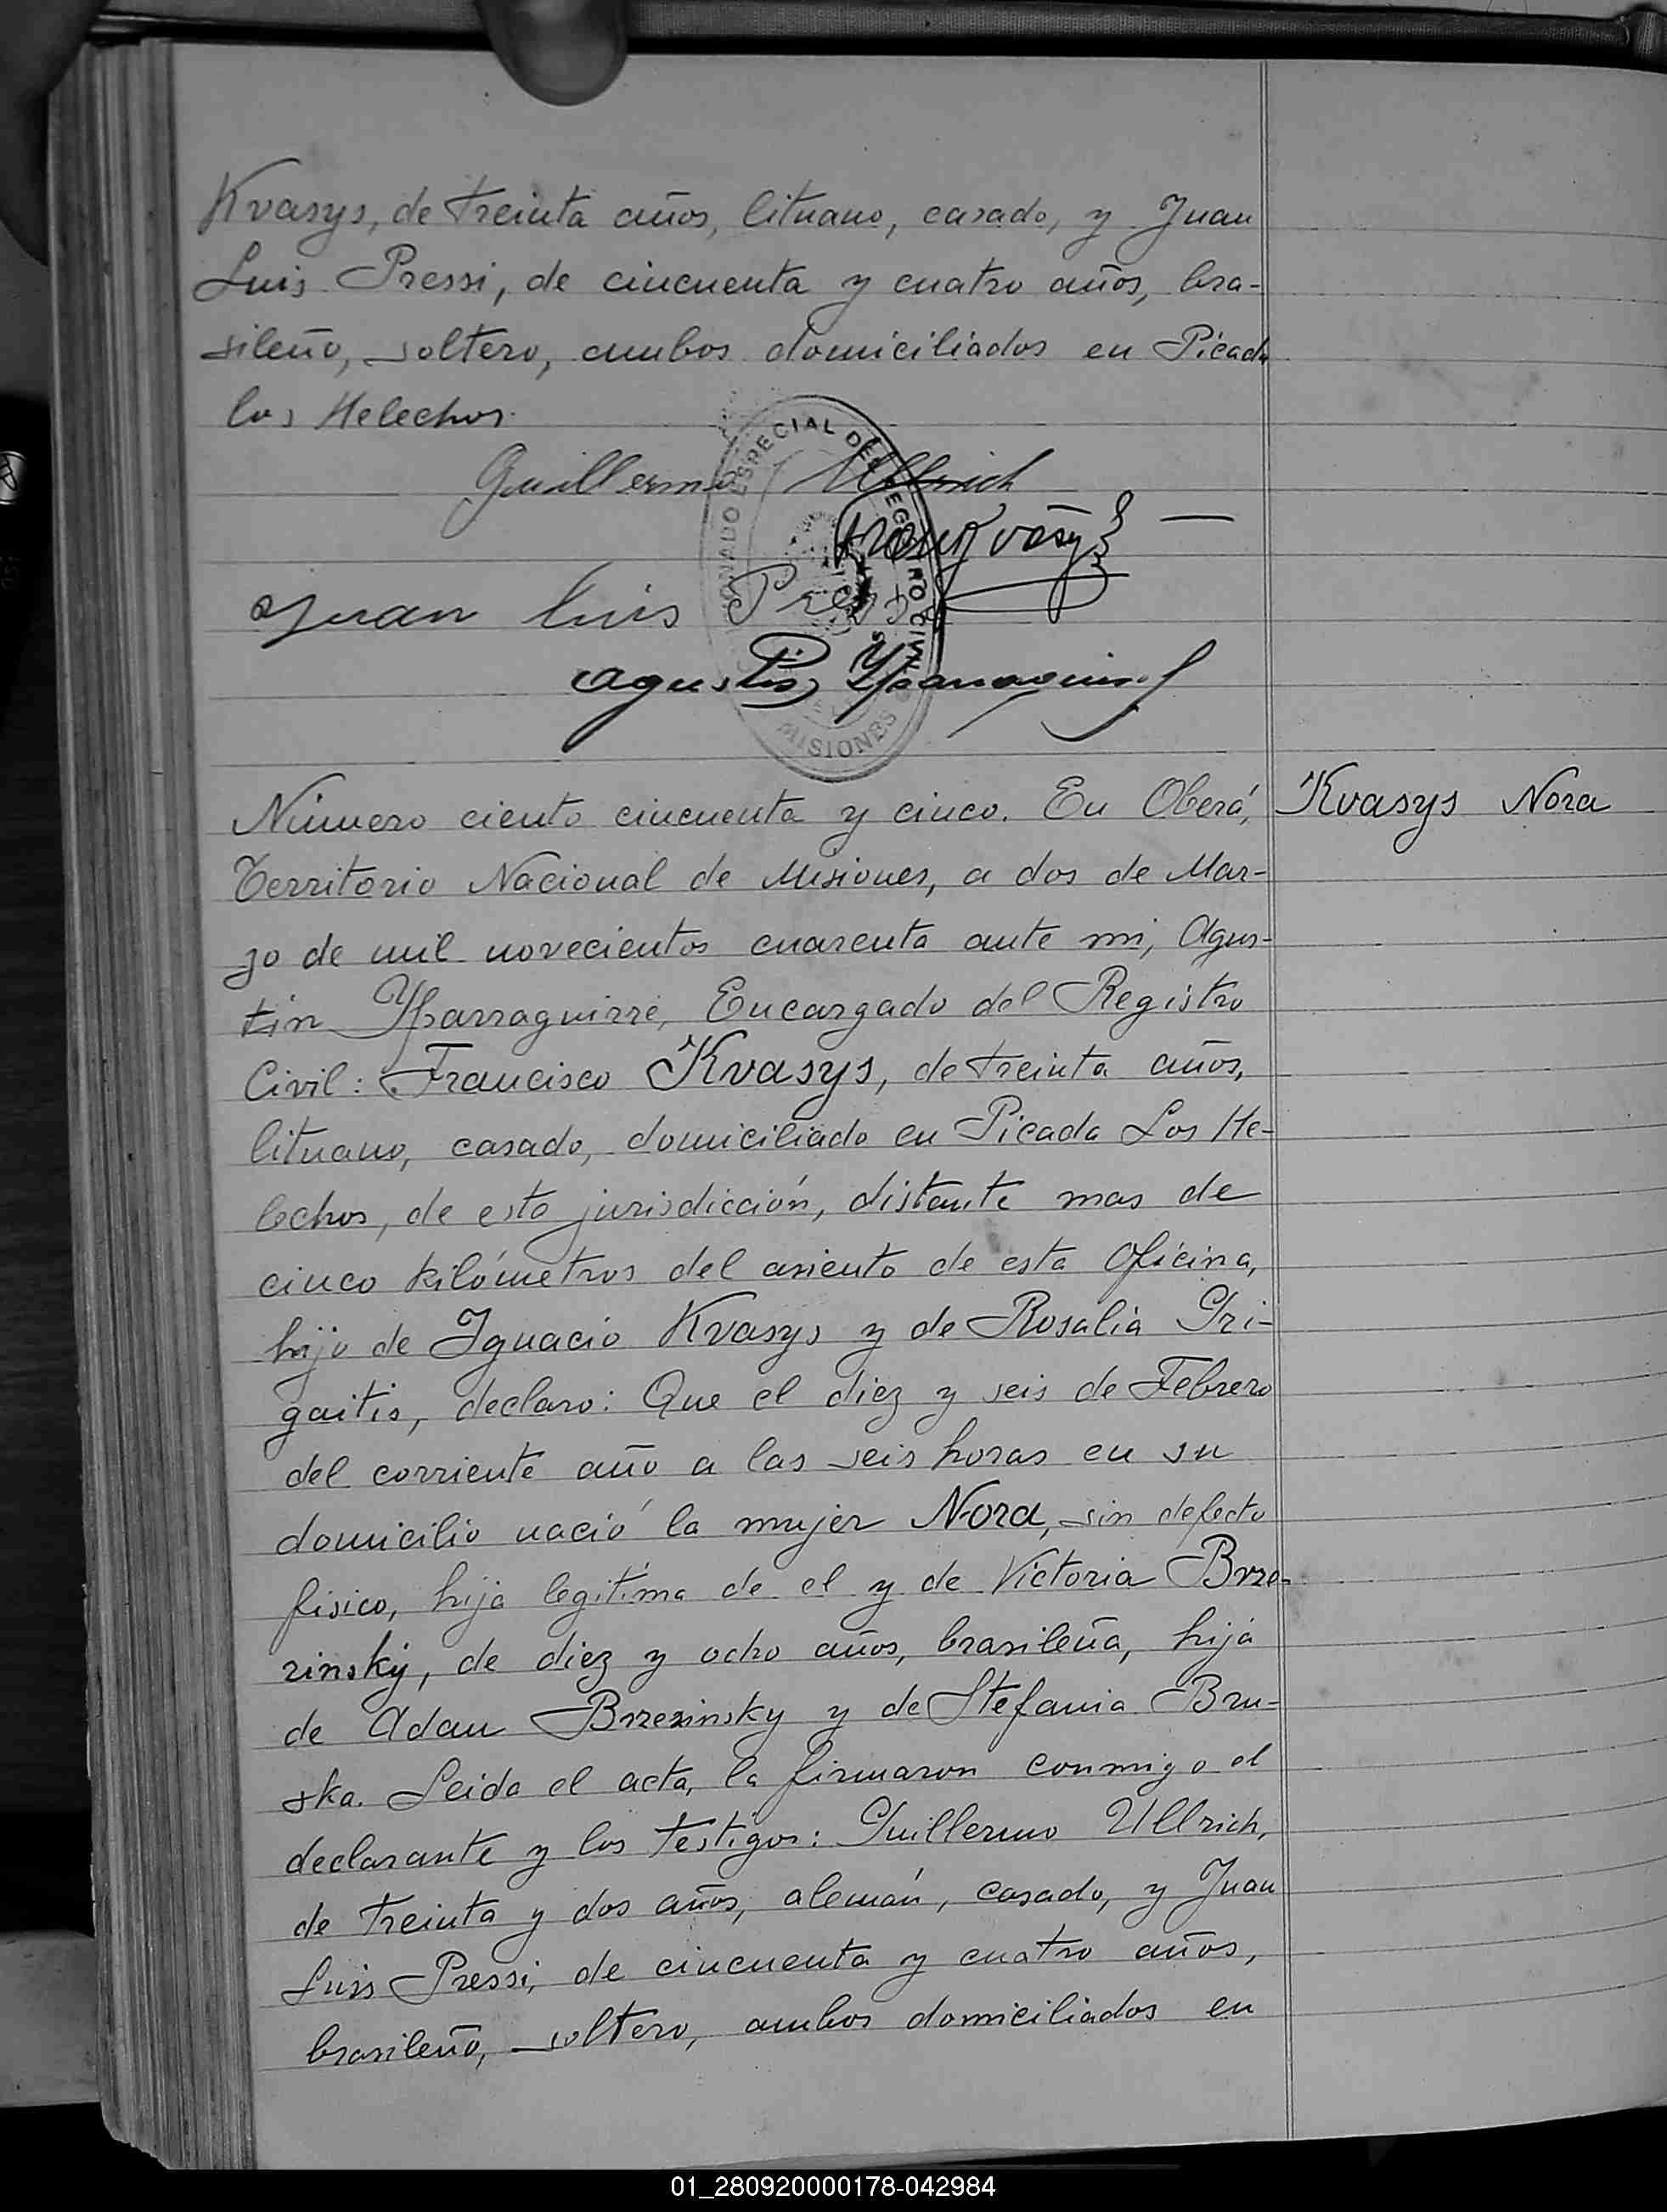 Kvasys, de treinta años, lituano, casado, y Juan
Luis Pressi, de cincuenta y cuatro años, bra-
sileño, soltero, ambos domiciliados en Picada
los Helechos.
Guillermo Ullrich
Juan Luis Pressi
Agustin Ybarraguirre
ESPECIAL DEL REGISTRO CIVIL
MISIONES
Número ciento cincuenta y cinco. En Oberá,
Kvasys Nora
Territorio Nacional de Misiones, a dos de Mar-
zo de mil novecientos cuarenta ante mi, Agus-
tin Ybarraguirre, Encargado del Registro
Civil: Francisco Kvasys, de treinta años,
lituano, casado, domiciliado en Picada Los He-
lechos, de esta jurisdicción, distante mas de
cinco kilómetros del asiento de esta Oficina,
hijo de Ignacio Kvasys y de Rosalia Gri-
gaitis, declaro: Que el diez y seis de Febrero
del corriente año a las seis horas en su
domicilio nació la mujer Nora, sin defecto
fisico, hija legitima de el y de Victoria Brze-
zinsky, de diez y ocho años, brasileña, hija
de Adan Brzezinsky y de Stefania Bru-
ska. Leida el acta, la firmaron conmigo el
declarante y los testigos: Guillermo Ullrich,
de treinta y dos años, alemán, casado, y Juan
Luis Pressi, de cincuenta y cuatro años,
brasileño, soltero, ambos domiciliados en
01_280920000178-042984